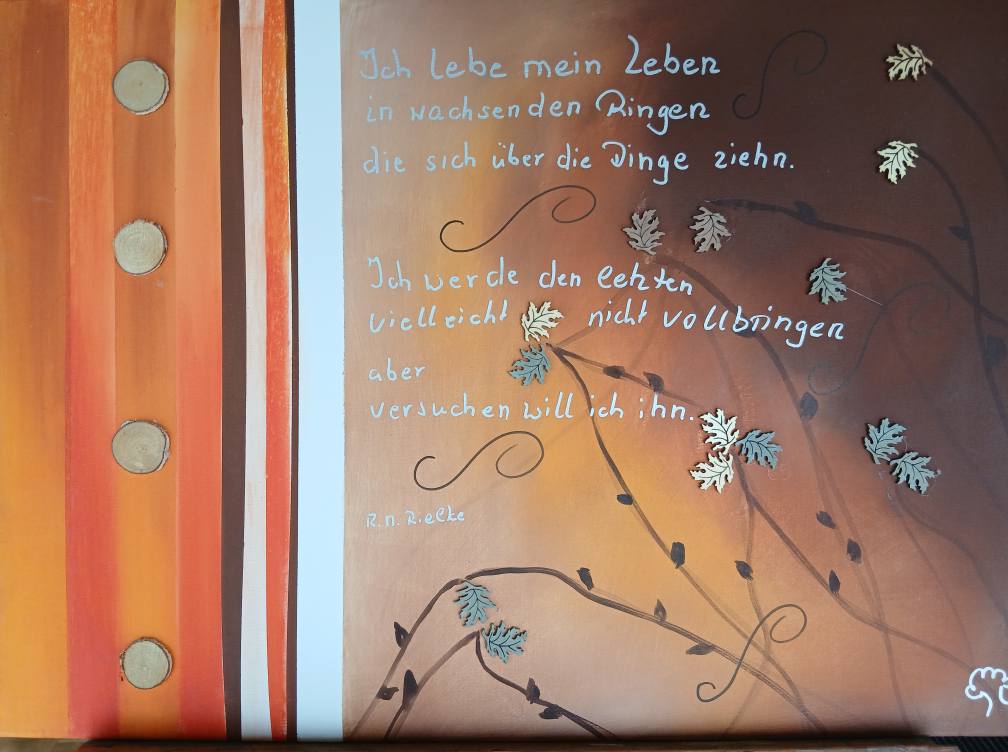 Ich lebe mein Leben
in wachsenden Ringen
die sich über die Dinge ziehn.
Ich werde den letzten
vielleicht nicht vollbringen
aber
versuchen will ich ihn.
R.M. Rielke